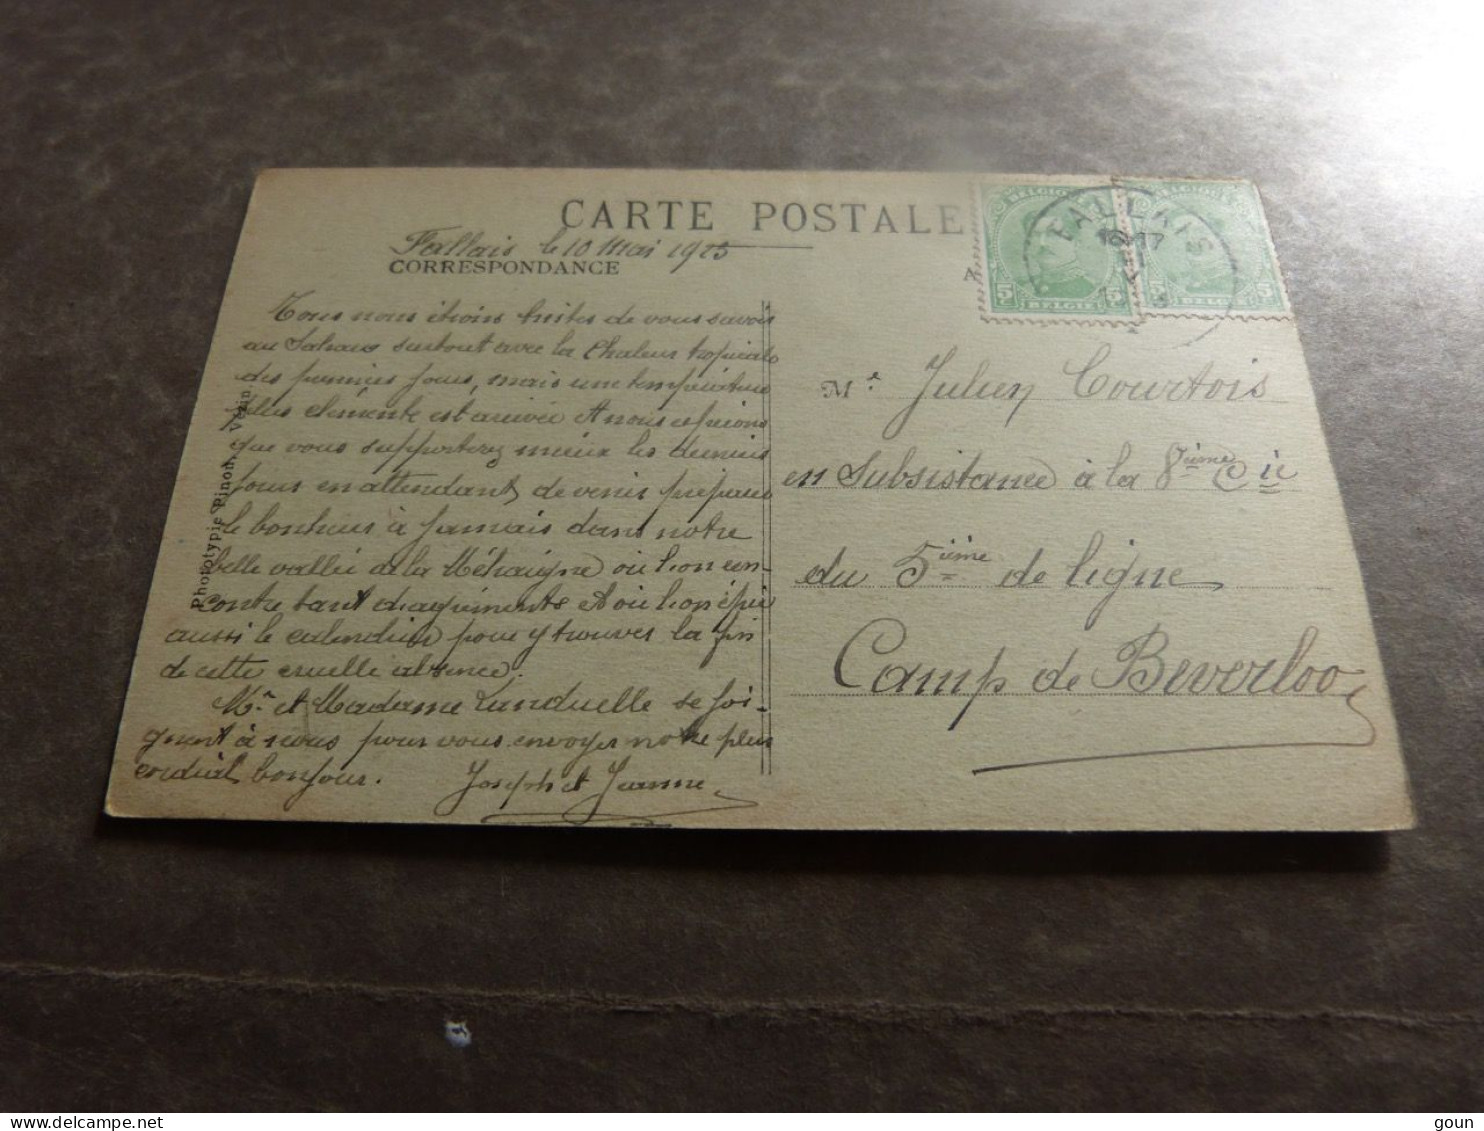 CARTE POSTALE
Fallais le 10 Mai 1915
CORRESPONDANCE
BELGIQUE
BELGIQUE
FALLAIS
16-17
5 BELGIË 5
5 BELGIË 5
Tous nous étions tristes de vous savoir
au Sahara surtout avec la chaleur tropicale
des premiers jours, mais une température
plus clémente est arrivée et nous espérons
que vous supporterez mieux les derniers
jours en attendant de venir préparer
le bonheur à jamais dans notre
belle vallée de la Méhaigne où l'on ren-
contre tant d'agréments et où l'on épie
aussi le calendrier pour y trouver la fin
de cette cruelle absence.
Mr et Madame Landuelle se joi-
gnent à nous pour vous envoyer notre plus
cordial bonjour. Joseph et Jeanne
Phototypie Pinon, Verin
Mr Julien Courtois
en Subsistance à la 8ième Cie
du 5ième de ligne
Camp de Beverloo
delcampe.net
goun